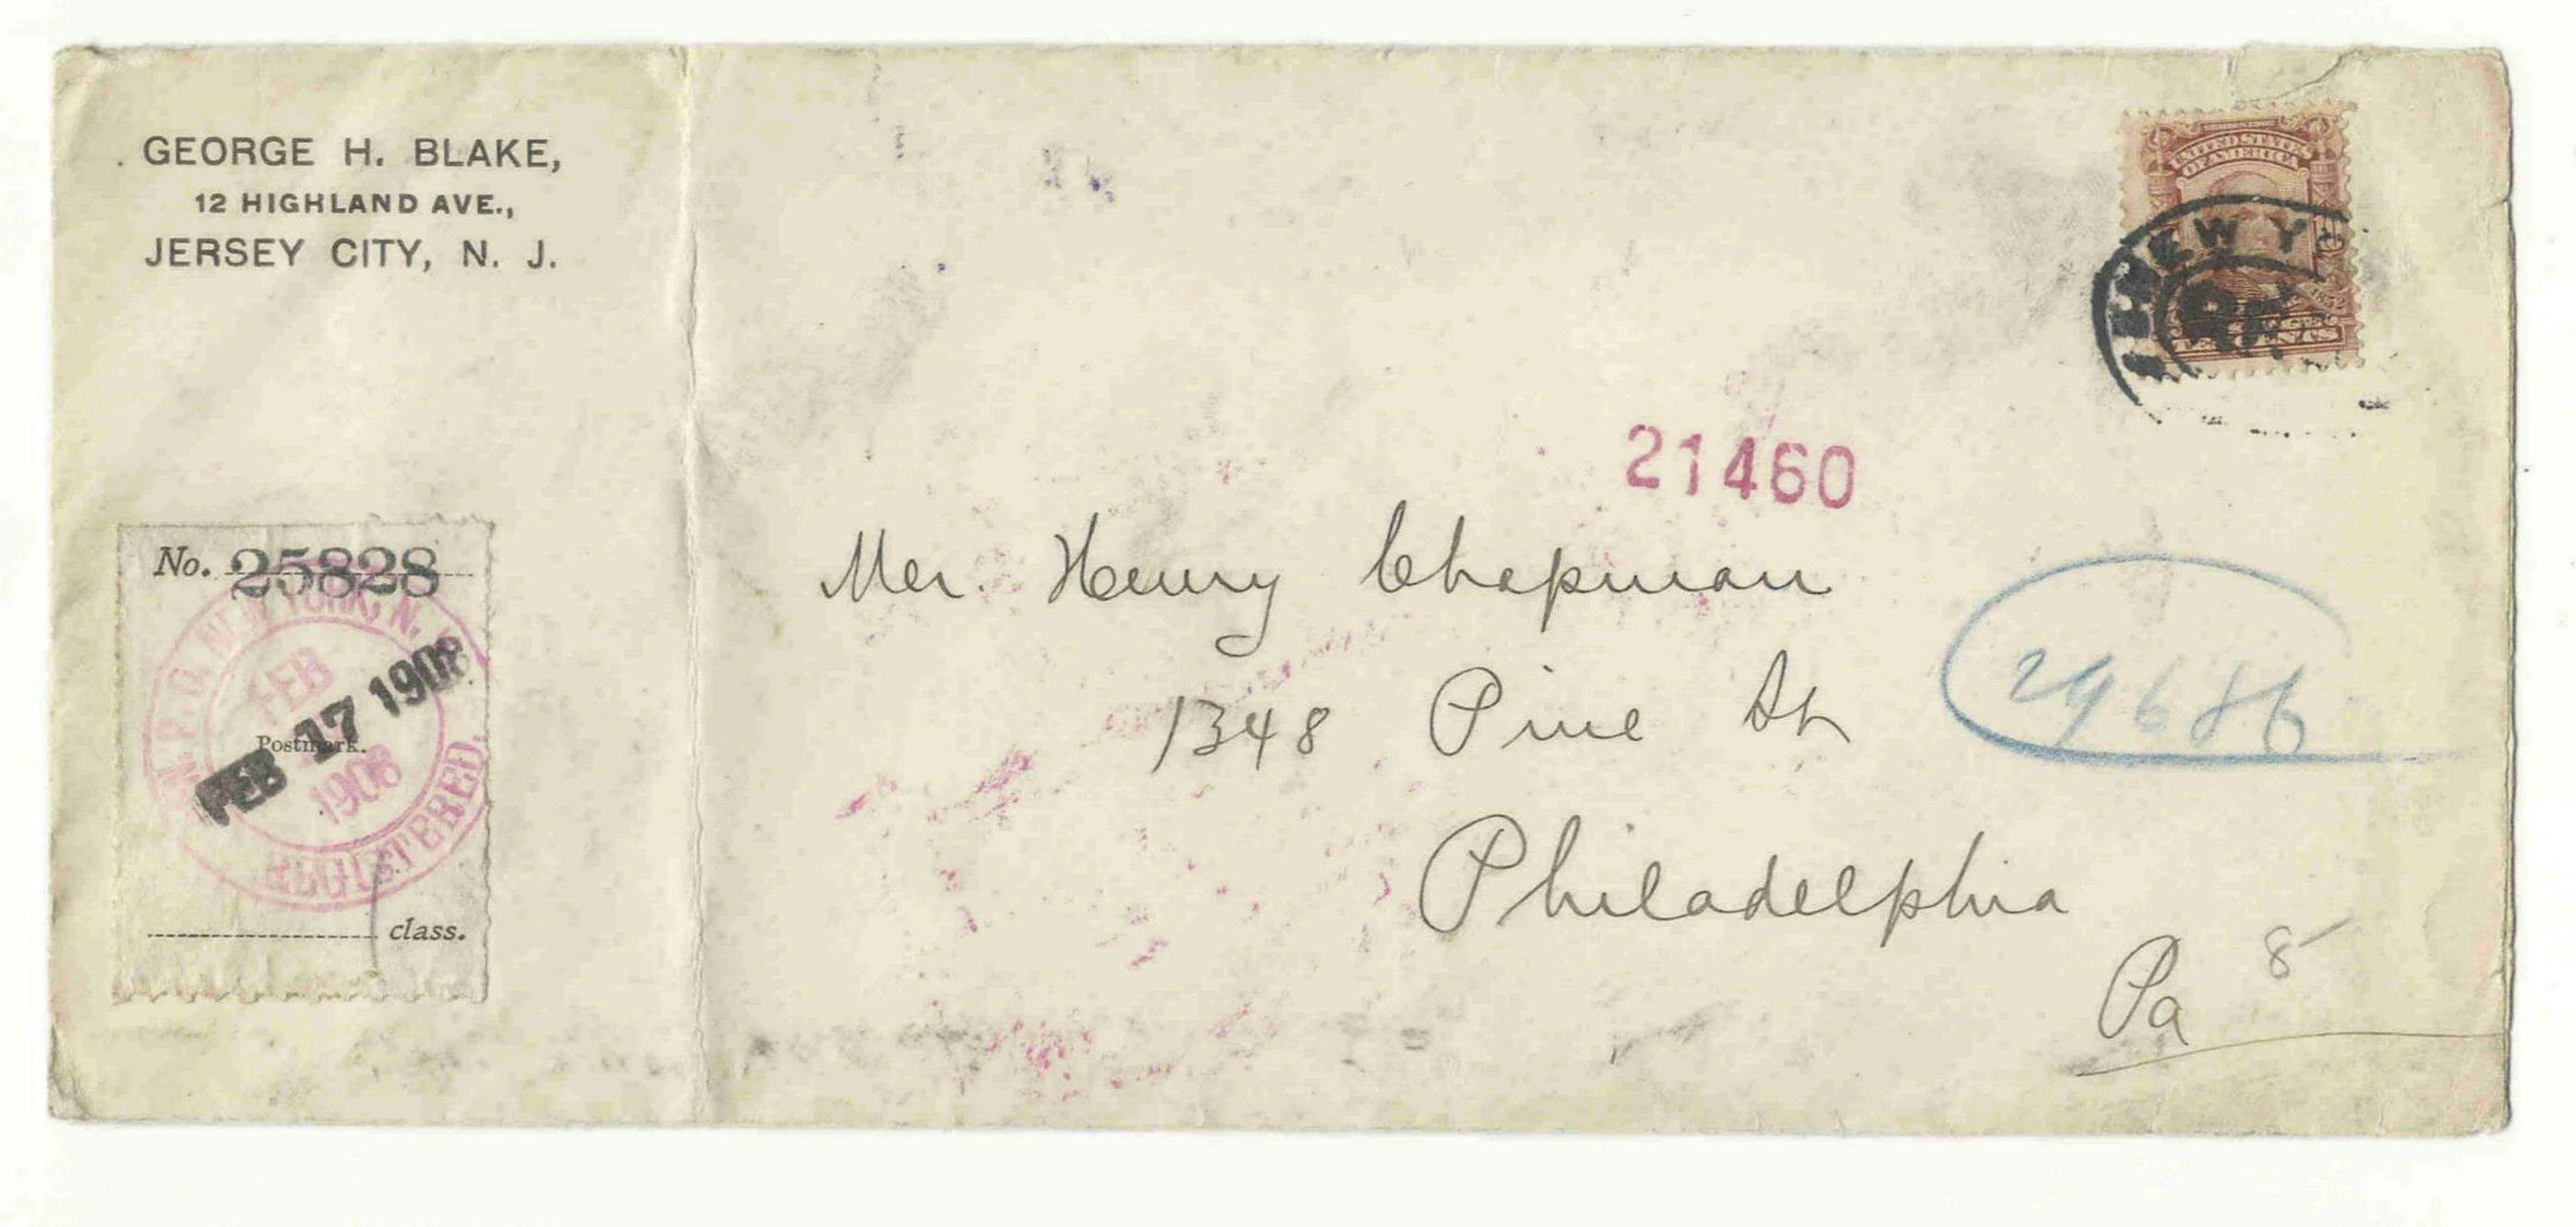 GEORGE H. BLAKE,
12 HIGHLAND AVE.,
JERSEY CITY, N. J.
UNITED STATES
OF AMERICA
NEW Y
TEN CENTS
21460
No. 25828
N.P.O. NEW YORK, N.
FEB
1908
FEB 17 1908
Postmark.
REGISTERED.
class.
Mr. Henry Chapman
1348 Pine St
29686
Philadelphia
Pa
8